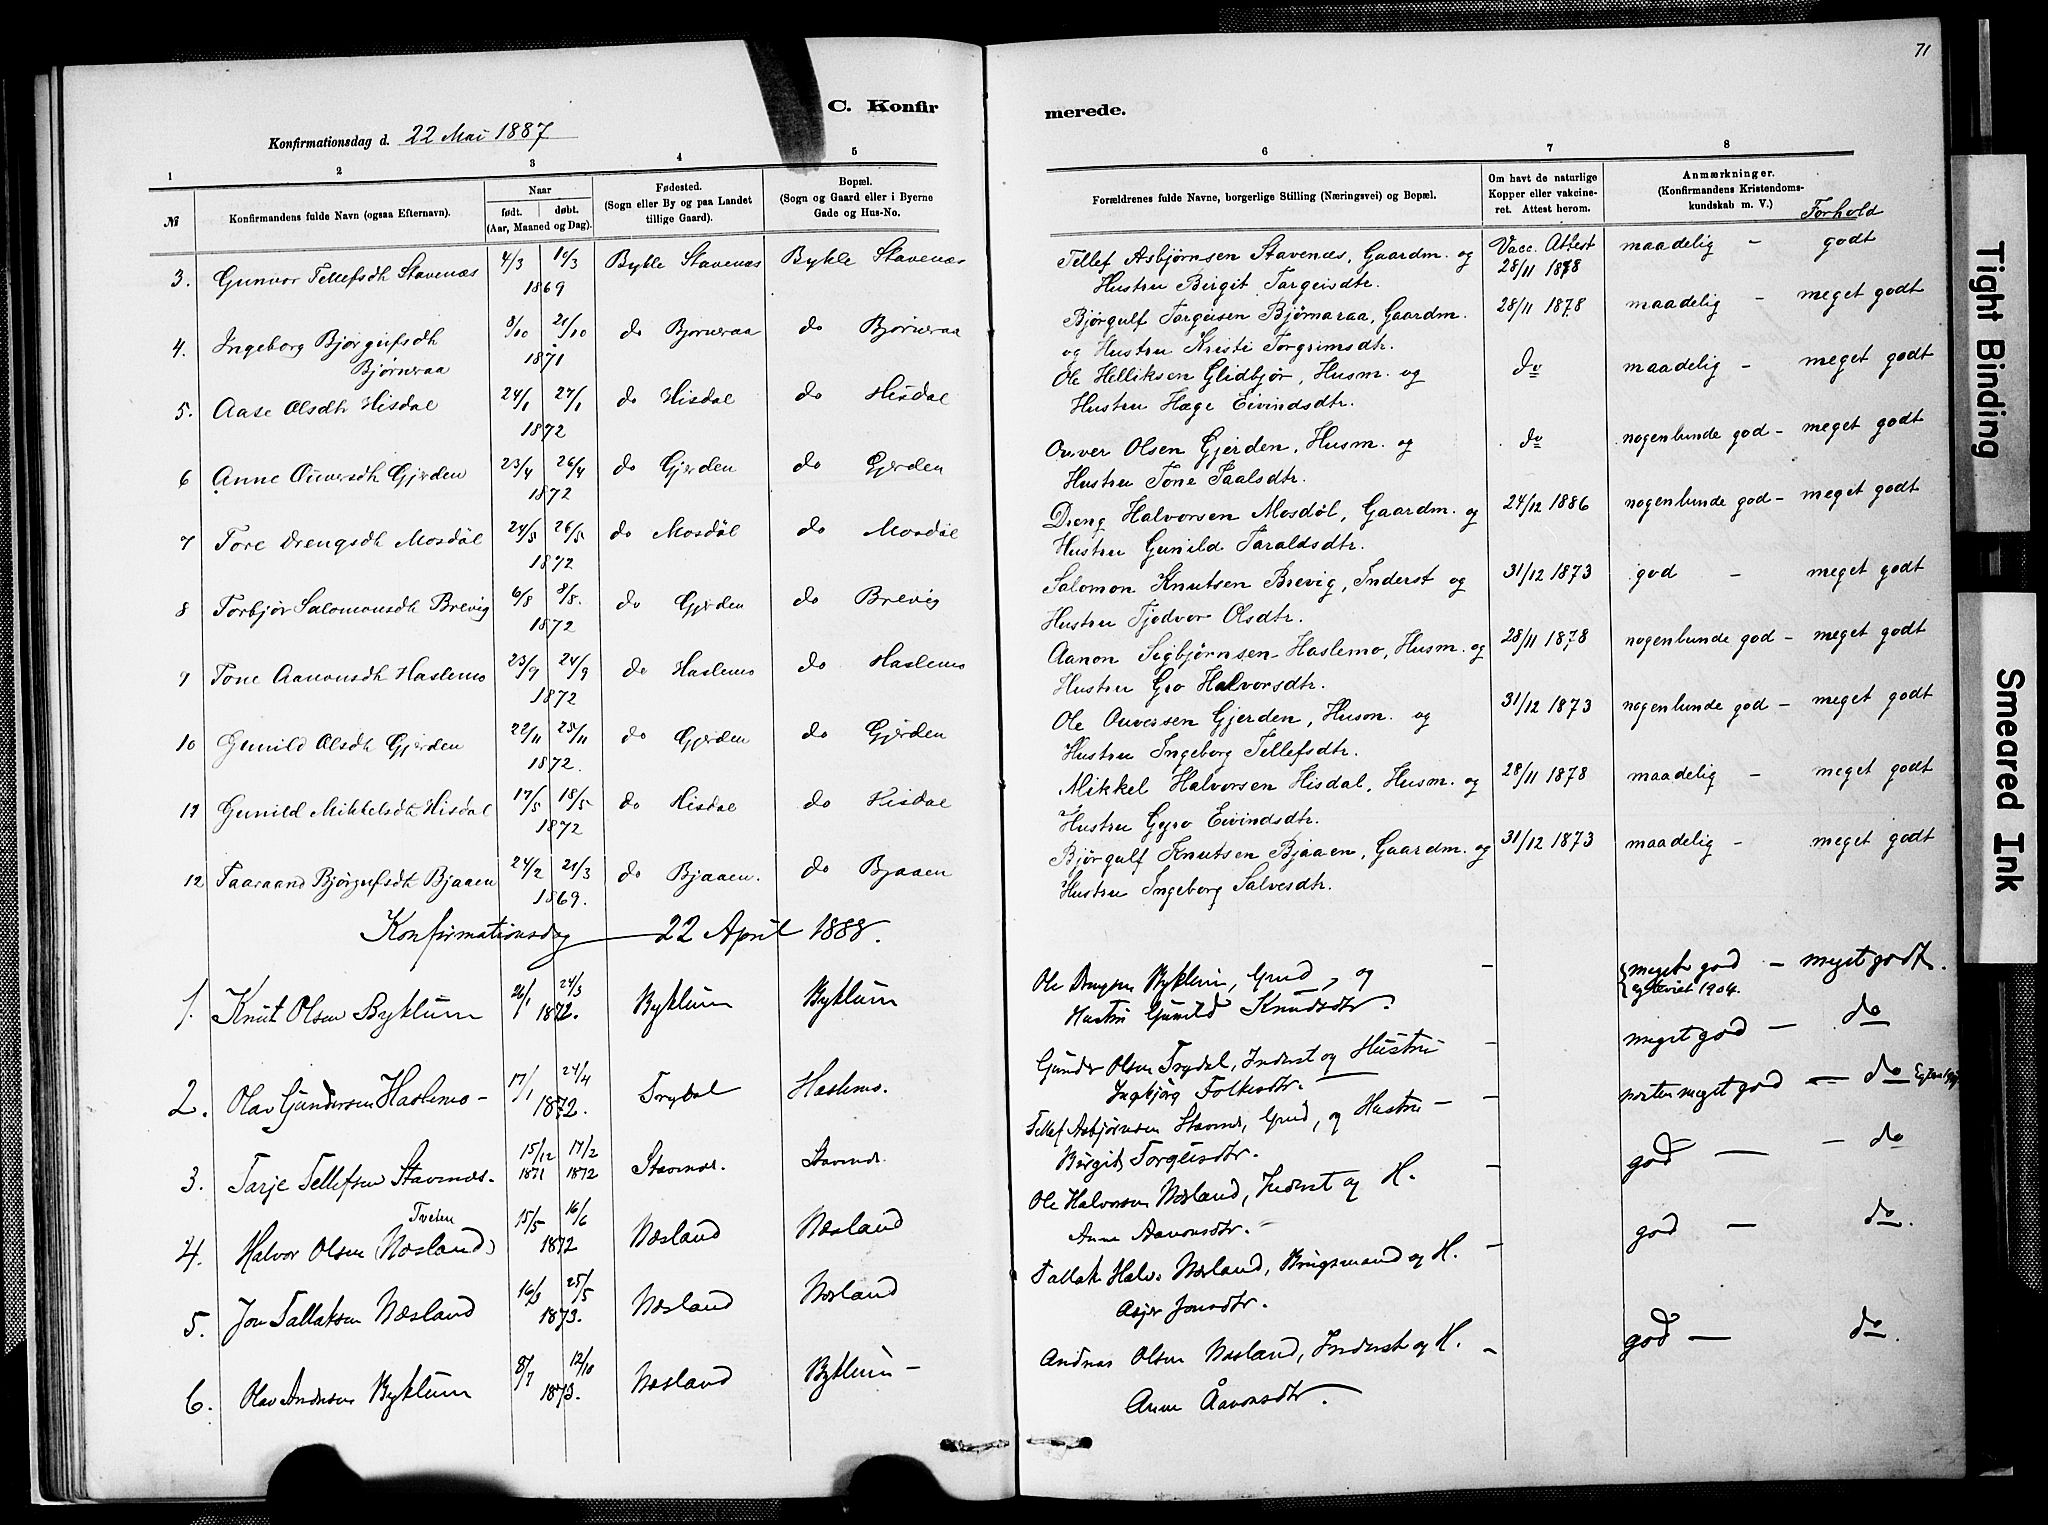 71
C. Konfirmerede.
Konfirmationsdag d. 22 Mai 1887
1 2 3 4 5 6 7 8
№
Konfirmandens fulde Navn (ogsaa Efternavn).
Naar
født. døbt.
(Aar, Maaned og Dag).
Fødested.
(Sogn eller By og paa Landet
tillige Gaard).
Bopæl.
(Sogn og Gaard eller i Byerne
Gade og Hus-No.
Forældrenes fulde Navne, borgerlige Stilling (Næringsvei) og Bopæl.
Om havt de naturlige
Kopper eller vakcine-
ret. Attest herom.
Anmærkninger.
(Konfirmandens Kristendoms-
kundskab m. V.)
Forhold
3. Gunvor Tellefsdt Stavenæs 4/3 14/3 1869 Bykle Stavenæs Bykle Stavenæs
Tellef Asbjørnsen Stavenæs, Gaardm. og Vacc. Attest maadelig – godt
Hustru Birgit Targeisdtr. 28/11 1878
4. Ingeborg Bjørgufsdt 8/10 21/10 do Bjørneraa do Bjørneraa
Bjørneraa 1871
Bjørgulf Targeisen Bjørnaraa, Gaardm. 28/11 1878 maadelig – meget godt
og Hustru Kristi Torgrimsdtr.
5. Aase Olsdt Hisdal 24/1 27/1 1872 do Hisdal do Hisdal
Ole Helliksen Glidbjør, Husm. og do maadelig – meget godt
Hustru Hæge Eivindsdtr.
6 Anne Ouversdt Gjerden 23/4 26/4 1872 do Gjerden do Gjerden
Ouver Olsen Gjerden, Husm. og do nogenlunde god – meget godt
Hustru Tone Paalsdtr.
7 Tore Drengsdt Mosdøl 24/5 26/5 1872 do Mosdøl do Mosdøl
Dreng Halvorsen Mosdøl, Gaardm. og 24/12 1886 nogenlunde god – meget godt
Hustru Gunild Taraldsdtr.
8 Torbjør Salomonsdt Brevig 6/8 8/8. 1872 do Gjerden do Brevig
Salomon Knutsen Brevig, Inderst og 31/12 1873 god – meget godt
Hustru Tjodvor Olsdtr.
9 Tone Aanonsdt Haslemo 23/9 24/9 1872 do Haslemo do Haslemo
Aanon Sigbjørnsen Haslemo, Husm. og 28/11 1878 nogenlunde god – meget godt
Hustru Gro Halvorsdtr.
10 Gunild Olsdt Gjerden 22/11 25/11 1872. do Gjerden do Gjerden
Ole Ouversen Gjerden, Husm. og 31/12 1873 nogenlunde god – meget godt
Hustru Ingeborg Tellefsdtr.
11 Gunild Mikkelsdt Hisdal 17/5 18/5 1872 do Hisdal do Hisdal
Mikkel Halvorsen Hisdal, Husm. og 28/11 1878 maadelig – meget godt
Hustru Gyro Eivindsdtr.
12 Taaraand Bjørgufsdt Bjaaen 24/2 21/3 1869. do Bjaaen. do Bjaaen
Bjørgulf Knutsen Bjaaen, Gaardm. og 31/12 1873 maadelig – meget godt
Hustru Ingeborg Salvesdtr.
Konfirmationsdag 22 April 1888.
1. Knut Olsen Byklum 21/1 24/3 1872. Byklum Byklum
Ole Byklum, og – meget god – meget godt.
Hustru Gunild Knudsdtr. 1904.
2. Olav Gundersen Haslemo – 17/1 24/4 1872. Trydal Haslemo.
Gunder Olsen Trydal, Inderst og Hustru – meget god – do
Ingbjørg Folkesdtr. –
3. Tarje Tellefsen Stavenæs. 15/12 1871 17/2 1872 Stavenæs. Stavenæs.
Tellef Asbjørnsen og Hustru – – næsten meget god – do
Birgit Torgeisdtr.
Tveten
4. Halvor Olsen (Næsland) 15/5 16/6 1872 Næsland Næsland
Ole Halvorsen Næsland, Inderst og H. – god – – do
Anne Aanonsdtr. –
5. Jon Tallaksen Næsland 16/3 25/5 1873. Næsland Næsland
Tallak Halv. Næsland, Brugsmand og H. – god – do.
Asjer Jonsdtr.
6. Olav Andersen Byklum 8/7 12/10 1873. Næsland Byklum –
Andreas Olsen Næsland, Inderst og H. – god – do.
Anne Åavonsdtr.
Tight Binding
Smeared Ink